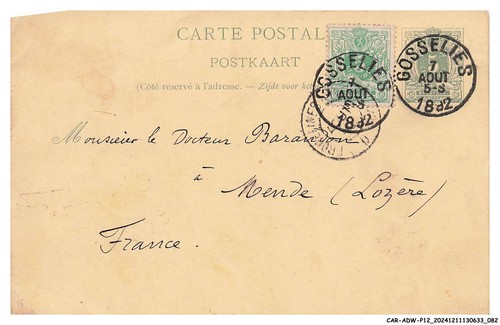 CARTE POSTAL
POSTKAART
(Côté réservé à l'adresse. — Zijde voor he
GOSSELIES
7
AOUT
5-S
1892
GOSSELIES
7
AOUT
5-S
1892
Monsieur le Docteur Barandon
à
Mende (Lozère)
France.
CAR-ADW-P12_20241211130633_082